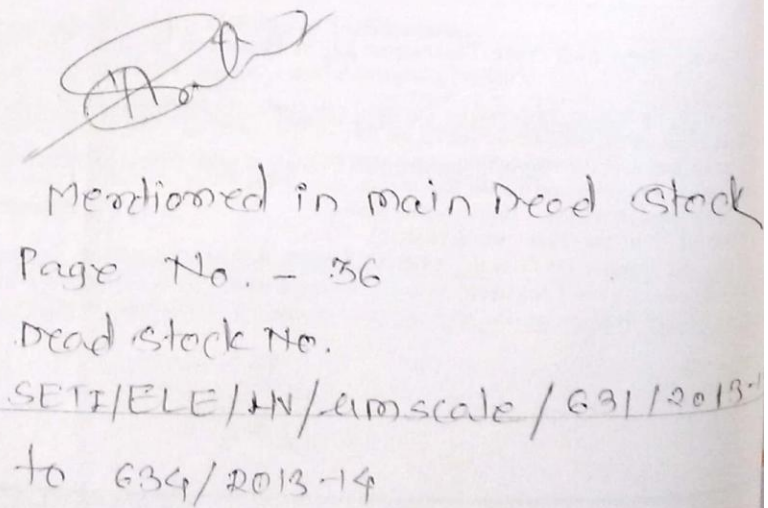 Mentioned in main Dead stock
Page No. - 36
Dead stock No.
SETI/ELE/IN/Lamscale/631/2013-1
to 634/2013-14